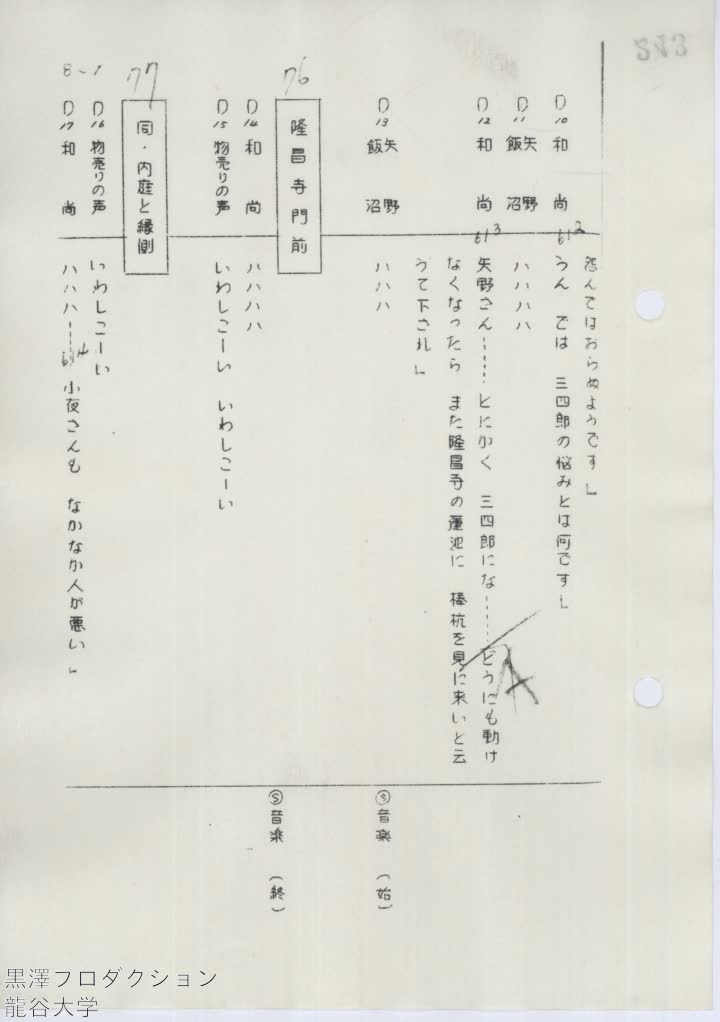 S43
怨んではおらぬようです」
D10 和尚 612 うん では 三四郎の悩みとは何です」
D11 矢野 飯沼 ハハハハ
D12 和尚 613 矢野さん……とにかく 三四郎にな……どうにも動け
なくなったら また隆昌寺の蓮池に 棒杭を見に来いと云
うて下され」
D13 矢野 飯沼 ハハハ Ⓢ音楽(始)
76 隆昌寺門前 Ⓢ音楽(終)
D14 和尚 ハハハハ
D15 物売りの声 いわしこーい いわしこーい
77 同・内庭と縁側
D16 物売りの声 いわしこーい
8-1 D17 和尚 ハハハ……614 小夜さんも なかなか人が悪い」
黒澤プロダクション
龍谷大学